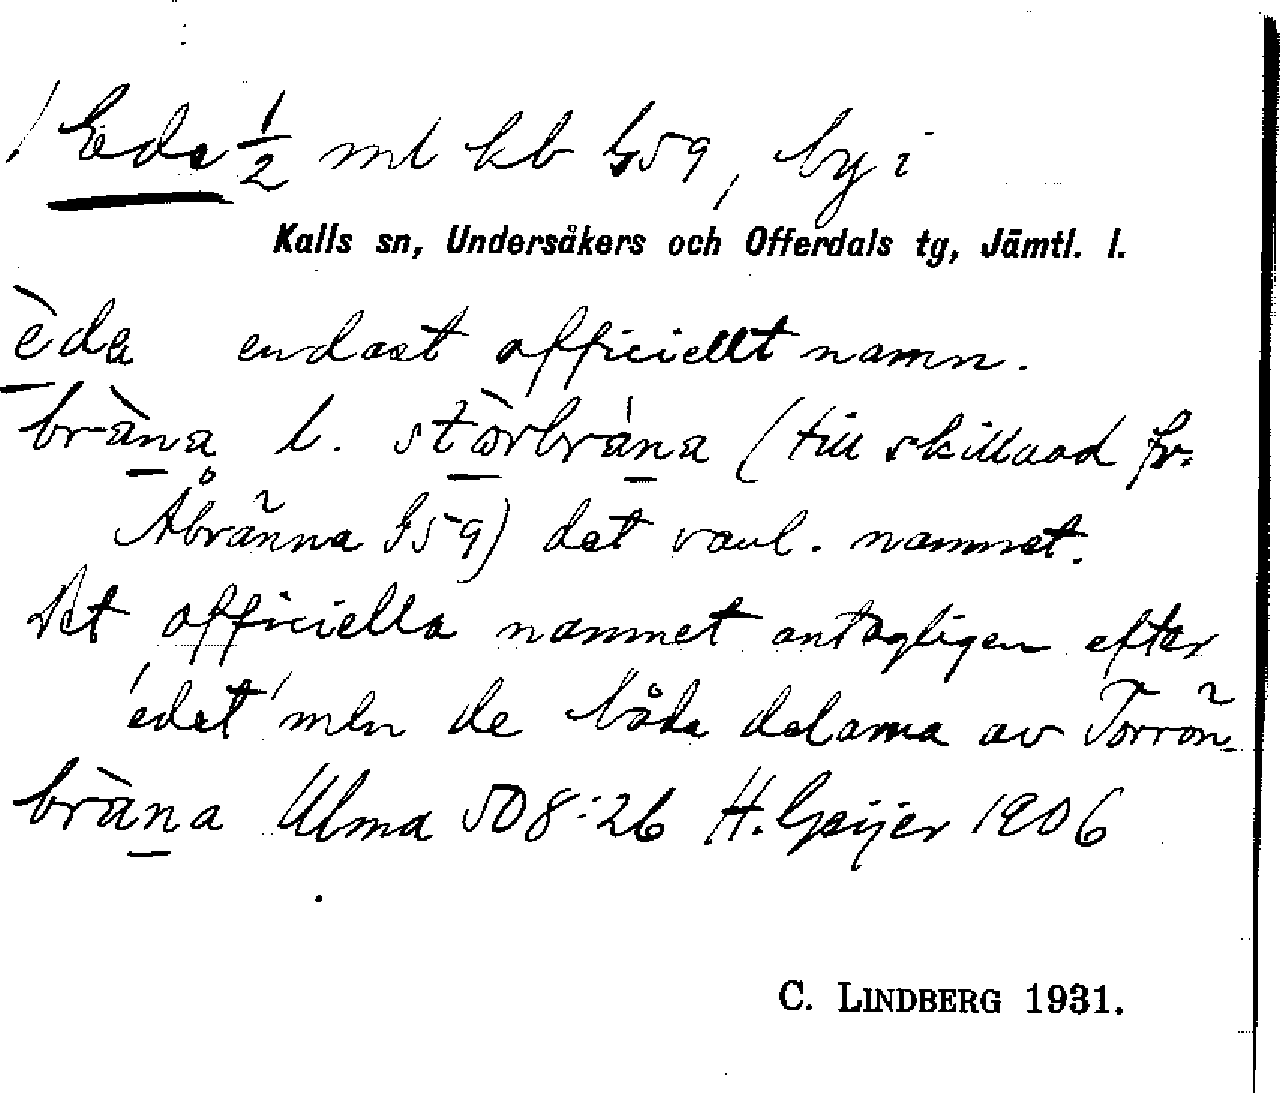 Ede ½ ml kb G59, by i
Kalls sn, Undersåkers och Offerdals tg, Jämtl. l.
èda endast officiellt namn.
bràna l. stòrbràna (till skillnad fr.
Åbränna G59) det vanl. namnet.
Det officiella namnet antagligen efter
'edet' mln de båda delarna av Torrön.
bràna Ulma 508:26 H. Geijer 1906
C. LINDBERG 1931.